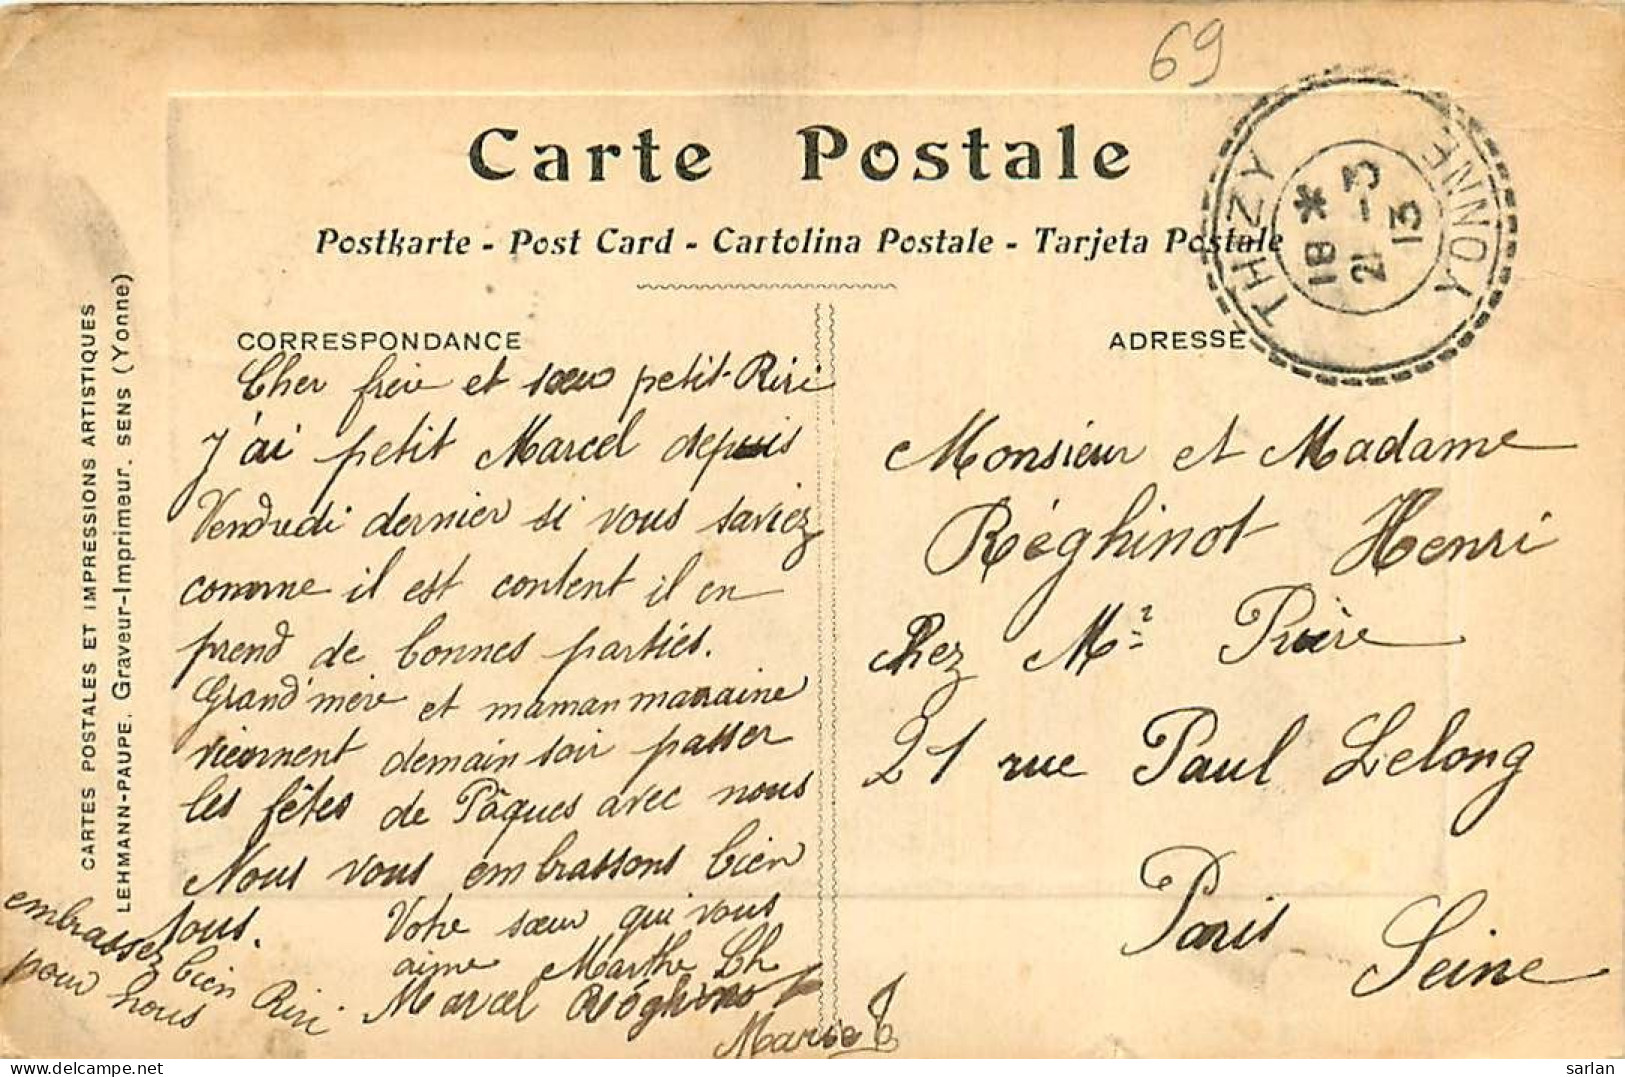 69
Carte Postale
Postkarte - Post Card - Cartolina Postale - Tarjeta Postale
THIZY
YONNE
18 *
21 - 3
13
CARTES POSTALES ET IMPRESSIONS ARTISTIQUES
LEHMANN-PAUPE, Graveur-Imprimeur, SENS (Yonne)
CORRESPONDANCE
Cher frère et sœur petit Riri
J'ai petit Marcel depuis
Vendredi dernier si vous saviez
comme il est content il en
prend de bonnes parties.
Grand'mère et maman marraine
viennent demain soir passer
les fêtes de Pâques avec nous
Nous vous embrassons bien
tous. Votre sœur qui vous
aime Marthe Ch
Marcel Réghinot
Marie
embrassez bien Riri
pour nous
ADRESSE
Monsieur et Madame
Réghinot Henri
Chez Mr
21 rue Paul Lelong
Paris
Seine
sarlan